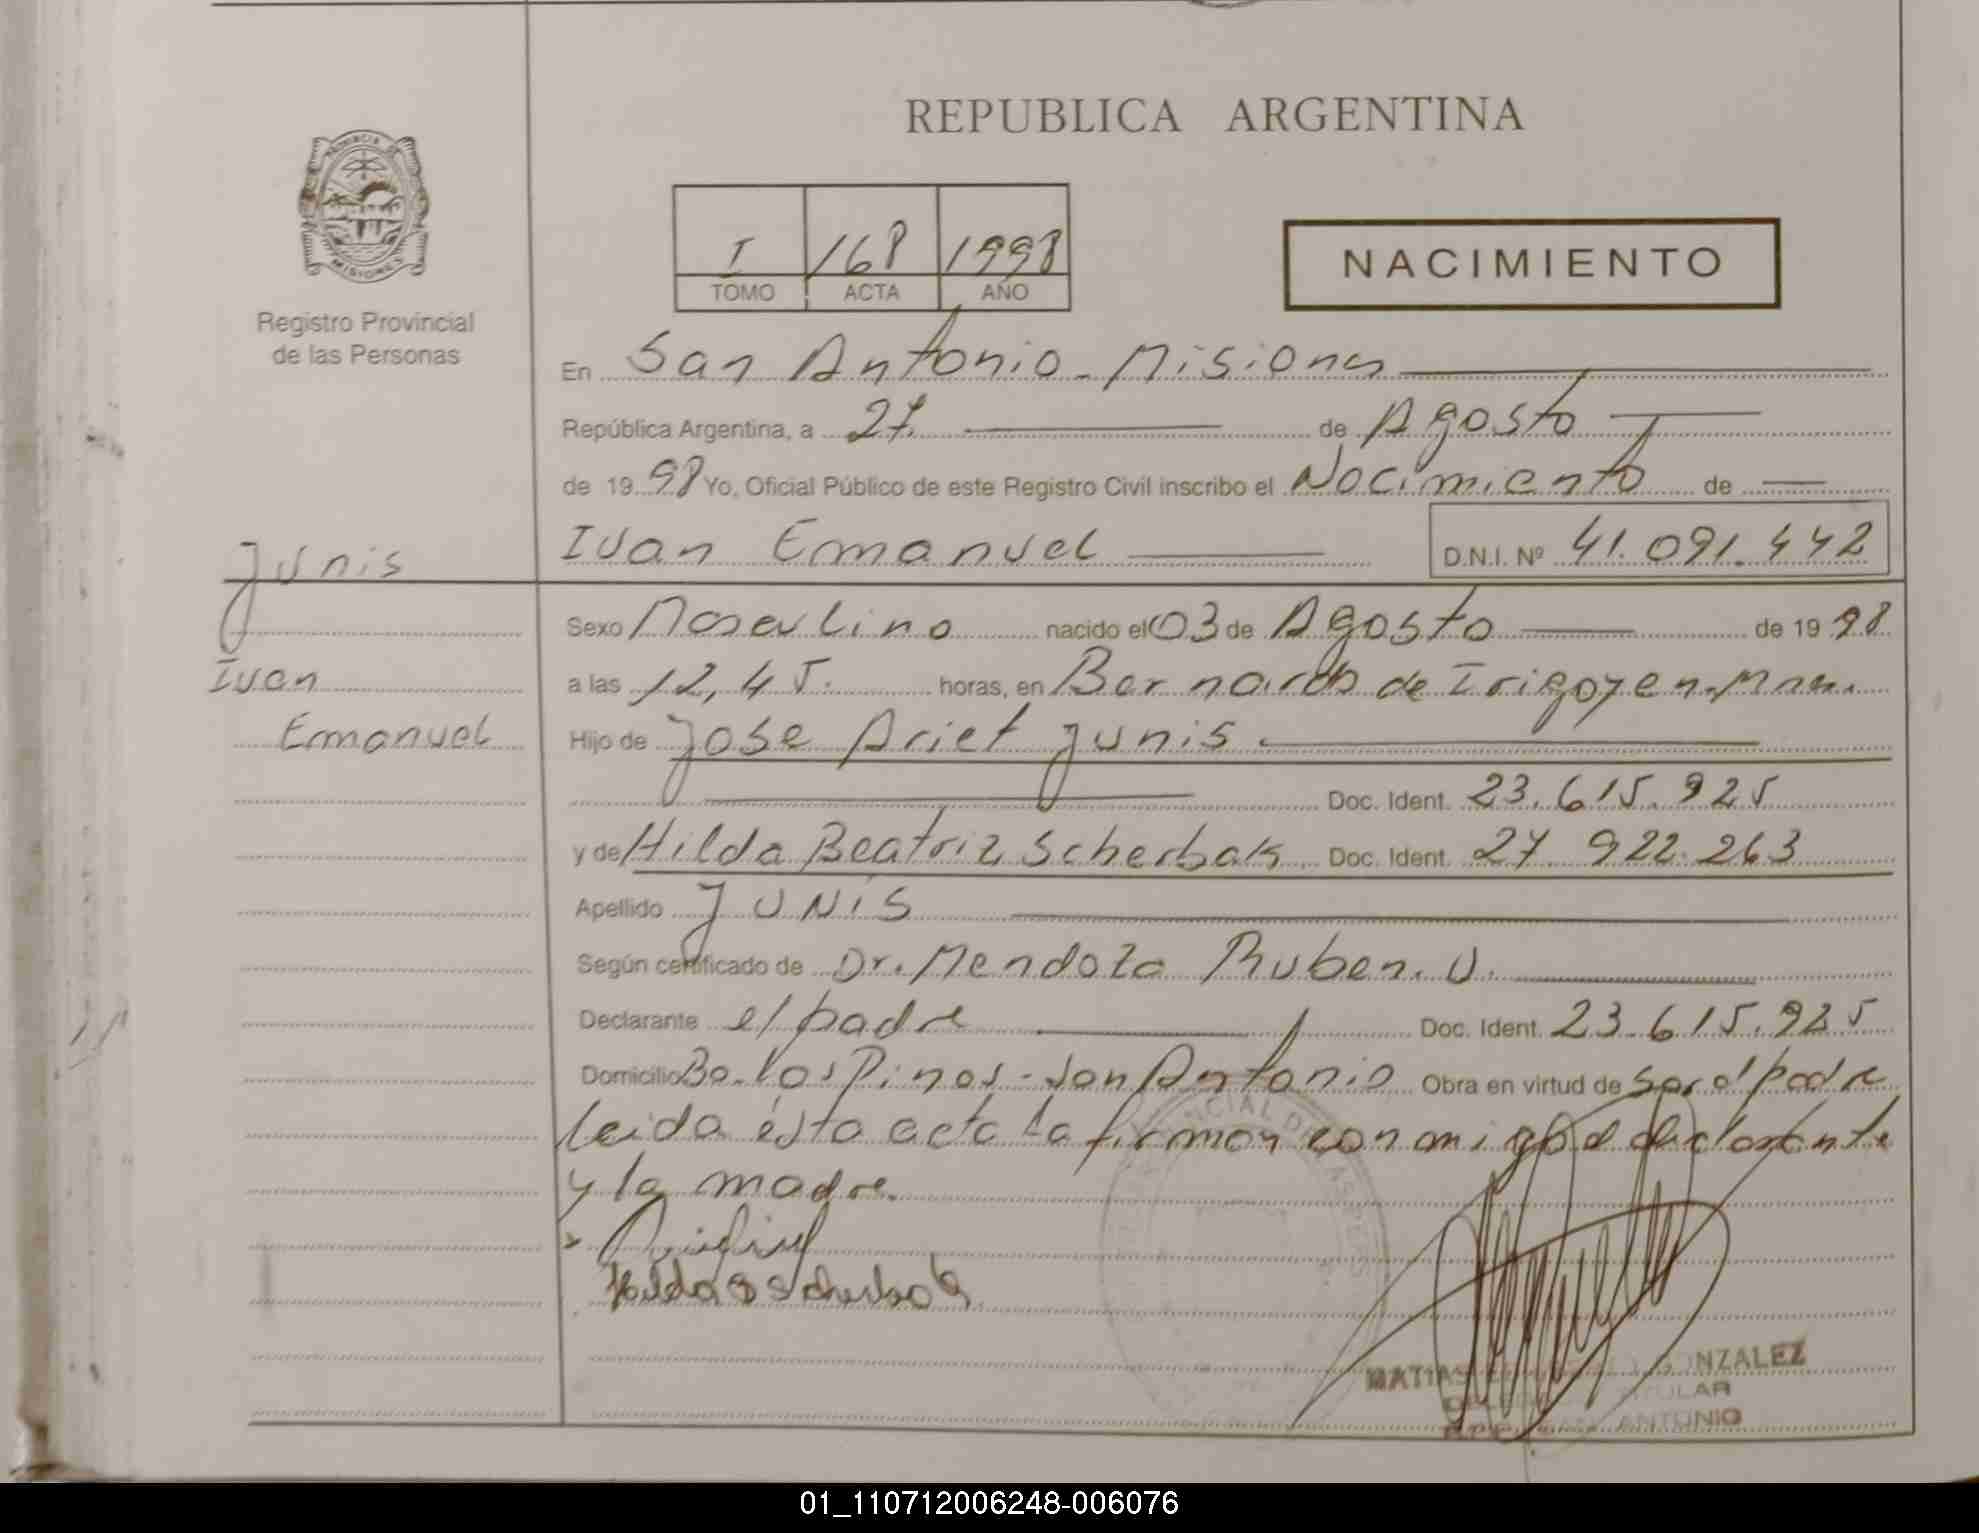 REPUBLICA ARGENTINA
PROVINCIA DE
MISIONES
Registro Provincial
de las Personas
I 168 1998
TOMO ACTA AÑO
NACIMIENTO
En San Antonio - Misiones
República Argentina, a 27. de Agosto
de 1998 Yo, Oficial Público de este Registro Civil inscribo el Nacimiento de
Ivan Emanuel D.N.I. Nº 41.091.442
Junis
Ivan
Emanuel
Sexo Masculino nacido el 03 de Agosto de 1998
a las 12,45. horas, en Bernardo de Irigoyen.
Hijo de Jose Ariel Junis
Doc. Ident. 23.615.925
y de Hilda Beatriz Scherbak Doc. Ident. 27 922.263
Apellido JUNIS
Según certificado de Dr. Mendoza Ruben. U.
Declarante el padre Doc. Ident. 23.615.925
Domicilio Bo. Los Pinos - San Antonio Obra en virtud de ser el padre
leida ésta acta la firman conmigo el declarante
y la madre.
Hilda B Scherbak
MATIAS GONZALEZ
TITULAR
SAN ANTONIO
01_110712006248-006076